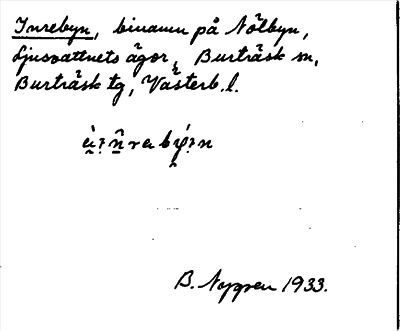 Inrebyn, binamn på Nölbyn,
Ljusvattnets ägor, Burträsk sn,
Burträsk tg, Västerb. l.
B. Norgren 1933.